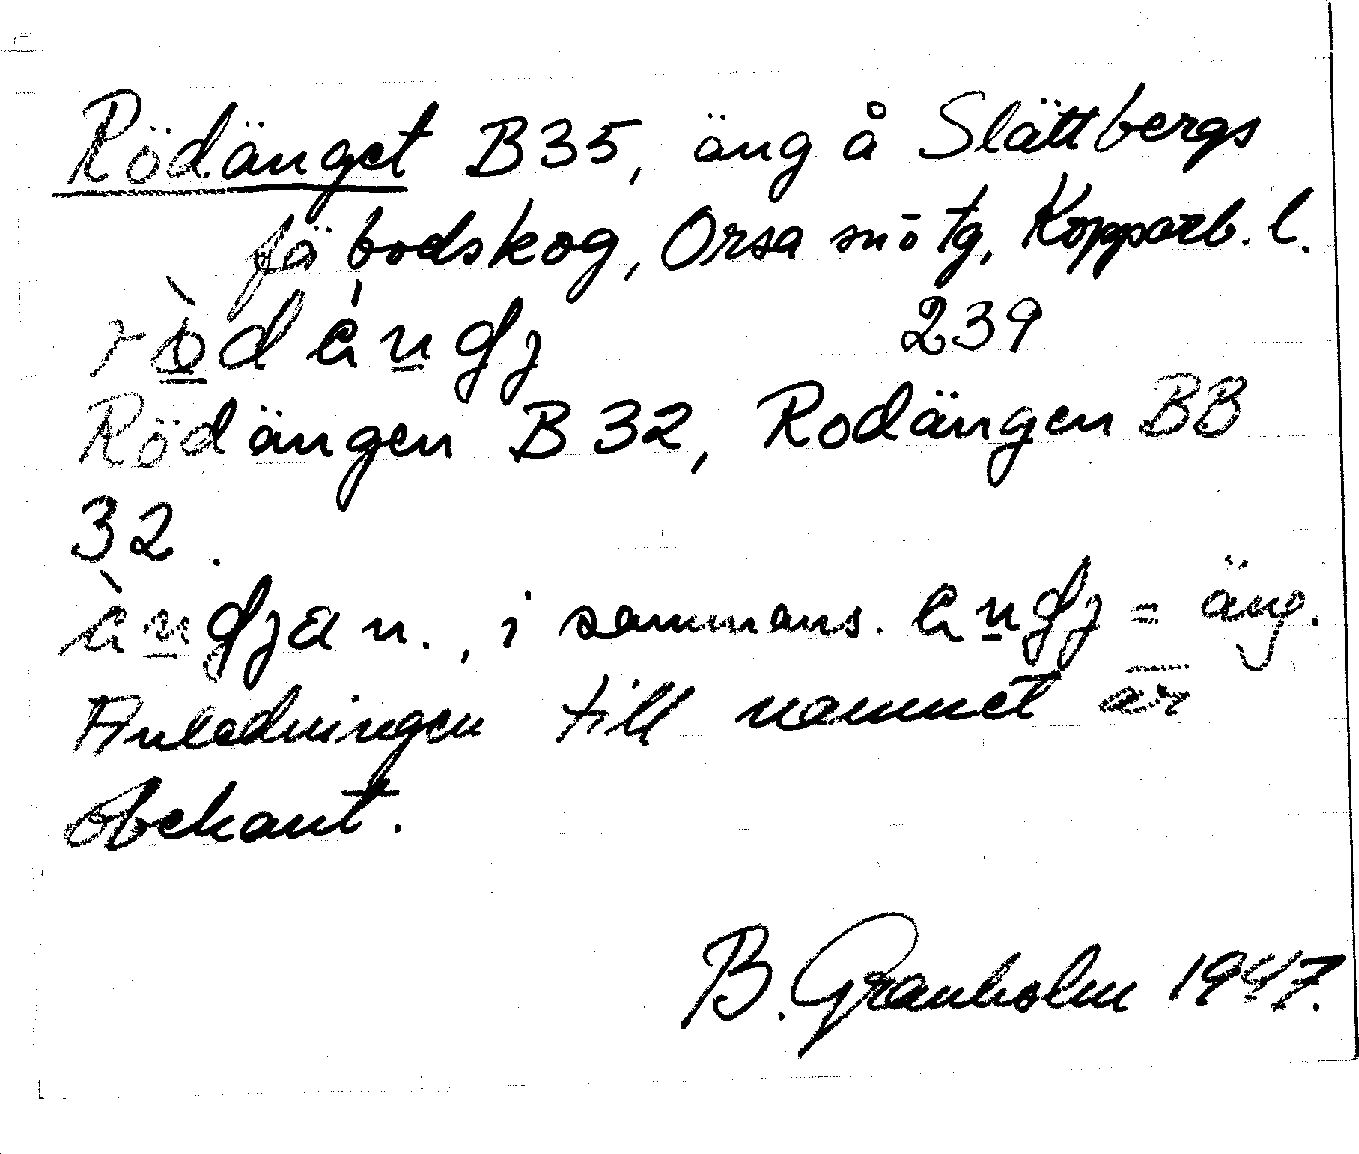 Rödänget B35, äng å Slättbergs
fäbodskog, Orsa sn ö tg, Kopparb. l.
239
Rödängen B 32, Rodängen BB
32.
n., i sammans. = äng.
Anledningen till namnet är
obekant.
B. Granholm 1947.